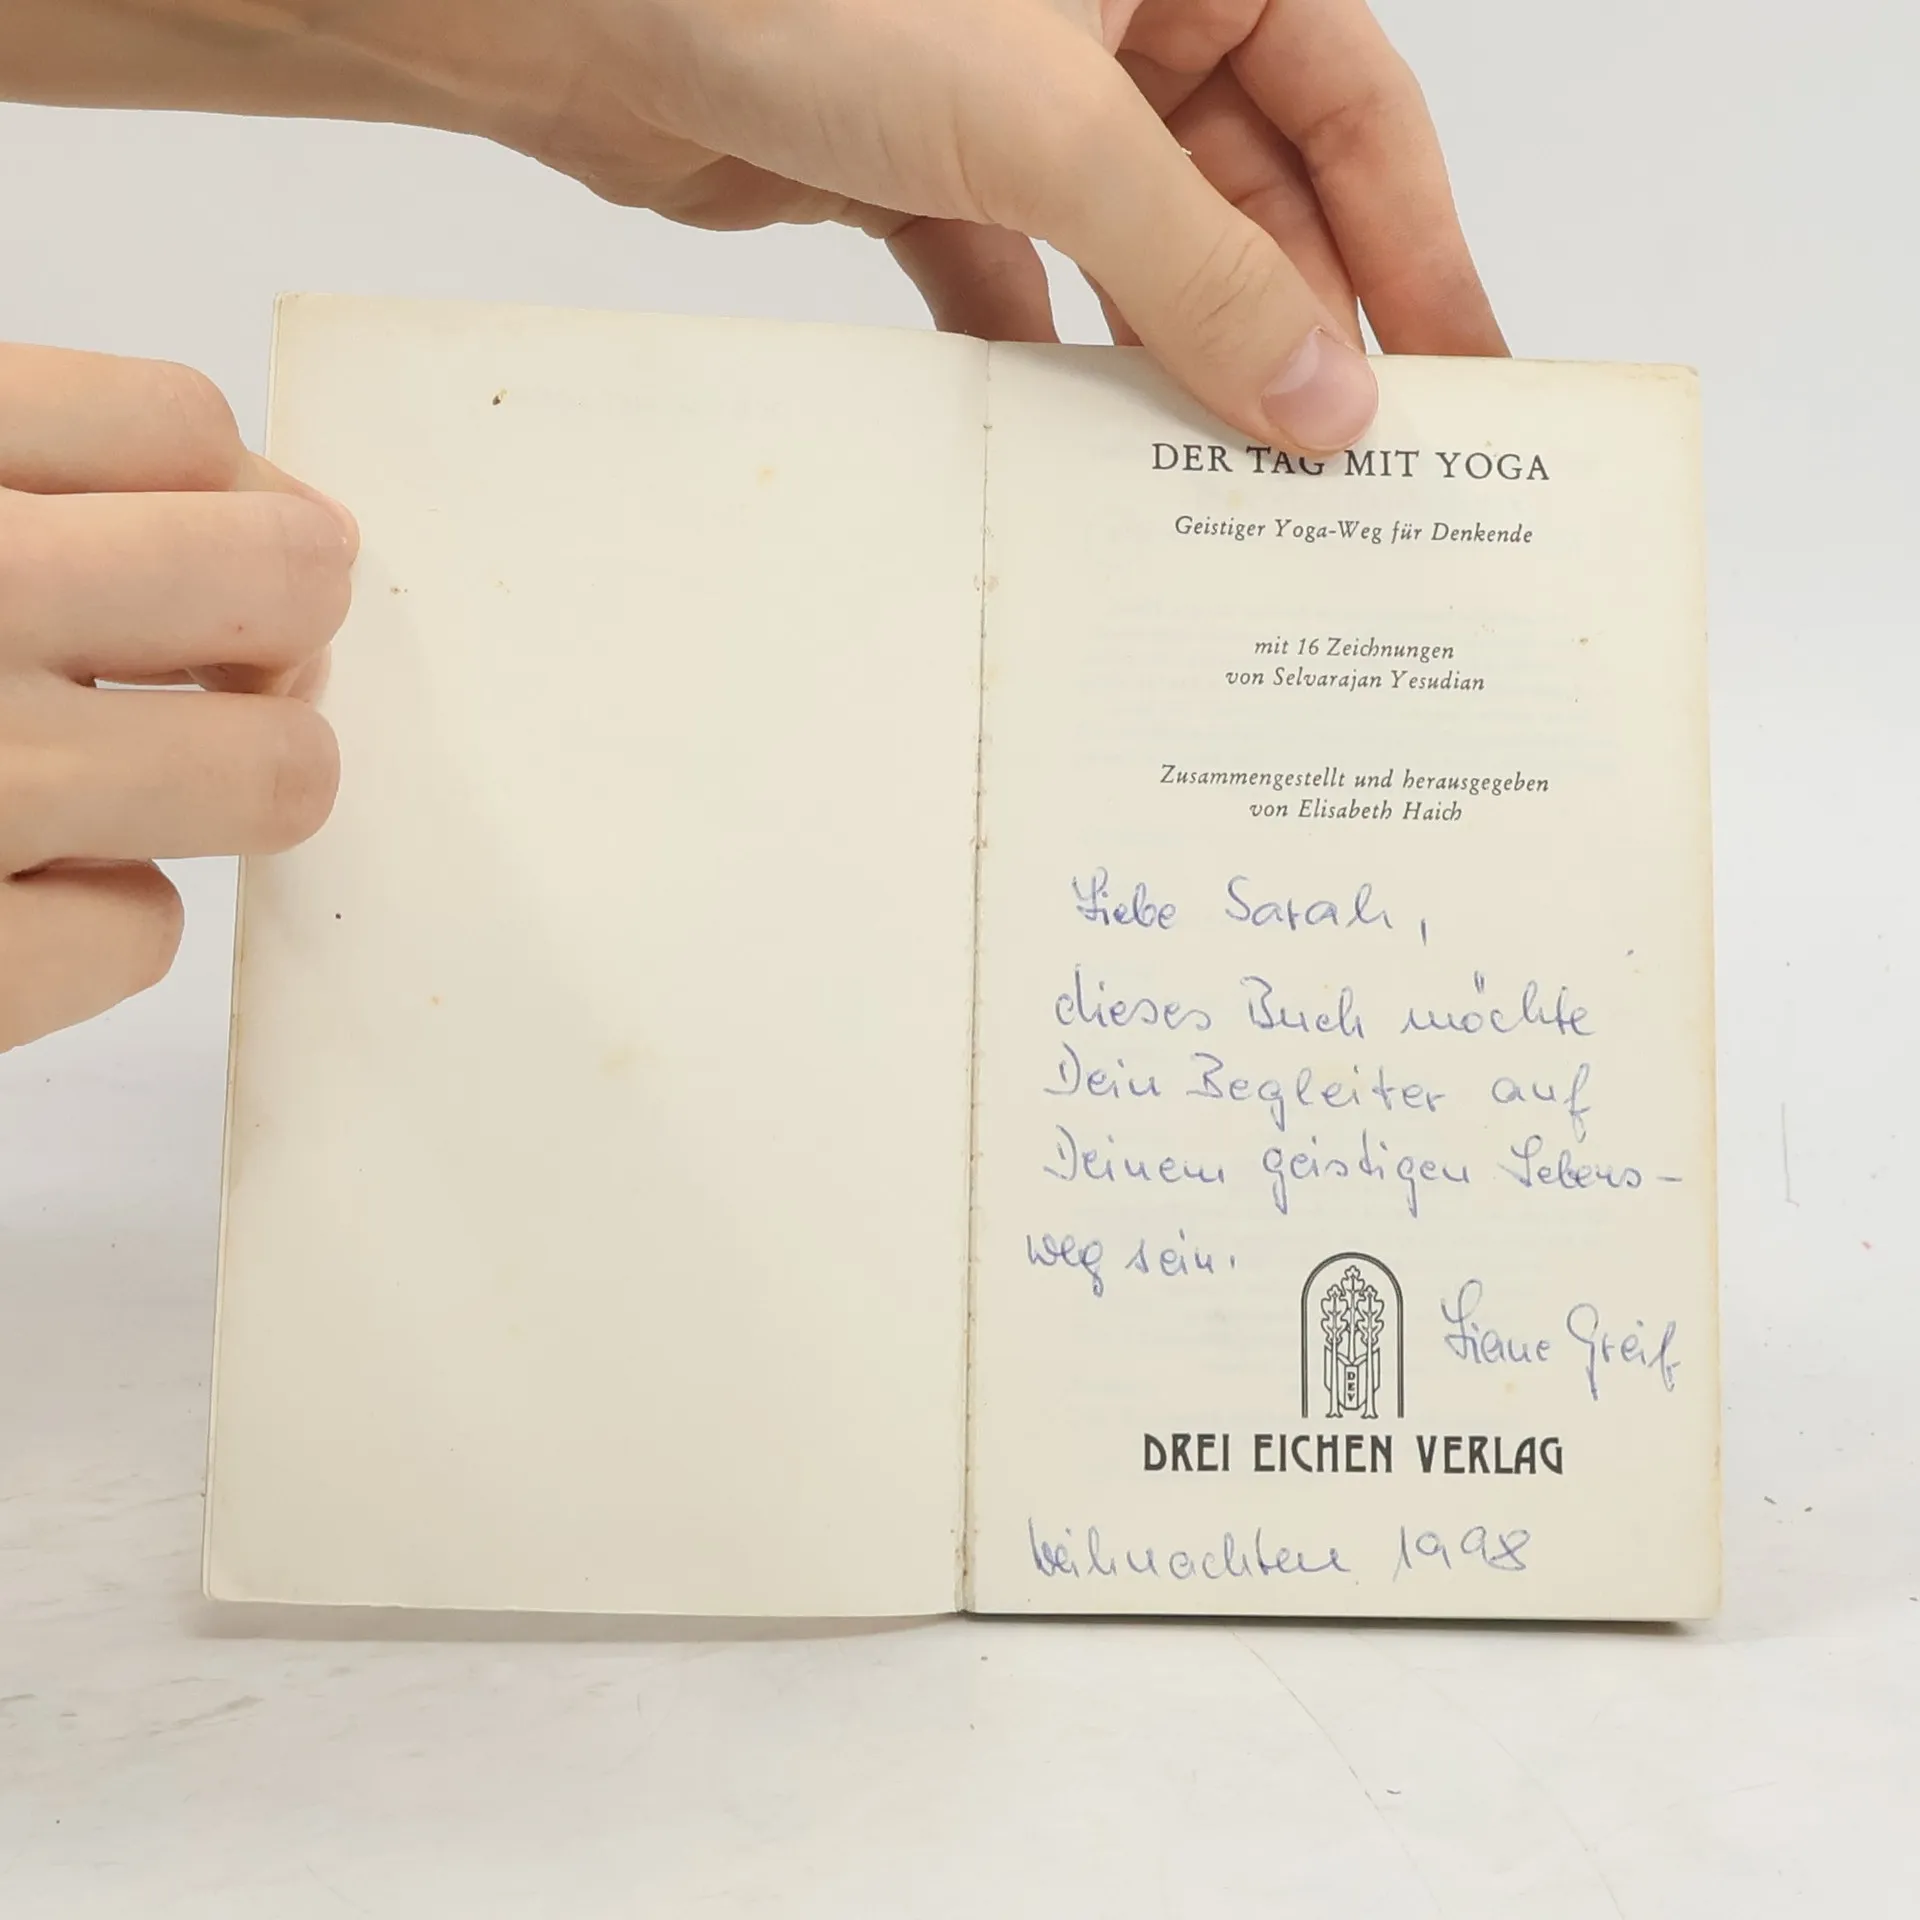 DER TAG MIT YOGA
Geistiger Yoga-Weg für Denkende
mit 16 Zeichnungen
von Selvarajan Yesudian
Zusammengestellt und herausgegeben
von Elisabeth Haich
Liebe Sarah,
dieses Buch möchte
Dein Begleiter auf
Deinem geistigen Lebens-
weg sein.
DEV
Liane Greif
DREI EICHEN VERLAG
Weihnachten 1998